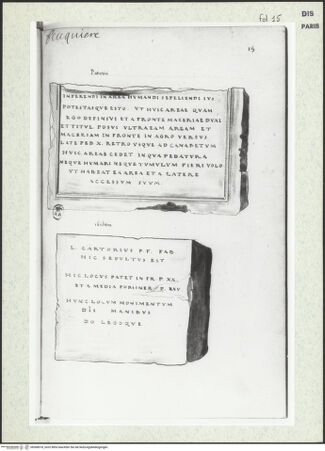 fol 15
DIS
PARIS
Requiere
15
INFERENDI IN AREA HUMANDI SEPELIENDI IUS
POTESTASQUE ESTO UT HUIC AREAE QUAM
EGO DEFINIVI ET A FRONTE MACERIAE DUXI
ET TITUL POSUI ULTRA EAM AREAM ET
MACERIAM IN FRONTE IN AGRO VERSUS
LATE PED X RETRO USQUE AD CANABETUM
HUIC AREAE CEDET IN QUA PEDATURA
NEQUE HUMARI NEQUE TUMULUM FIERI VOLO
UT HABEAT EA AREA ET A LATERE
ACCESSUM SUUM
ibidem
L CARTORIUS P F FAB
HIC SEPULTUS EST
HIC LOCUS PATET IN FR P XX
ET A MEDIA
HUNC LOCUM MONUMENTUM
DIS MANIBUS
DO LEGOQUE